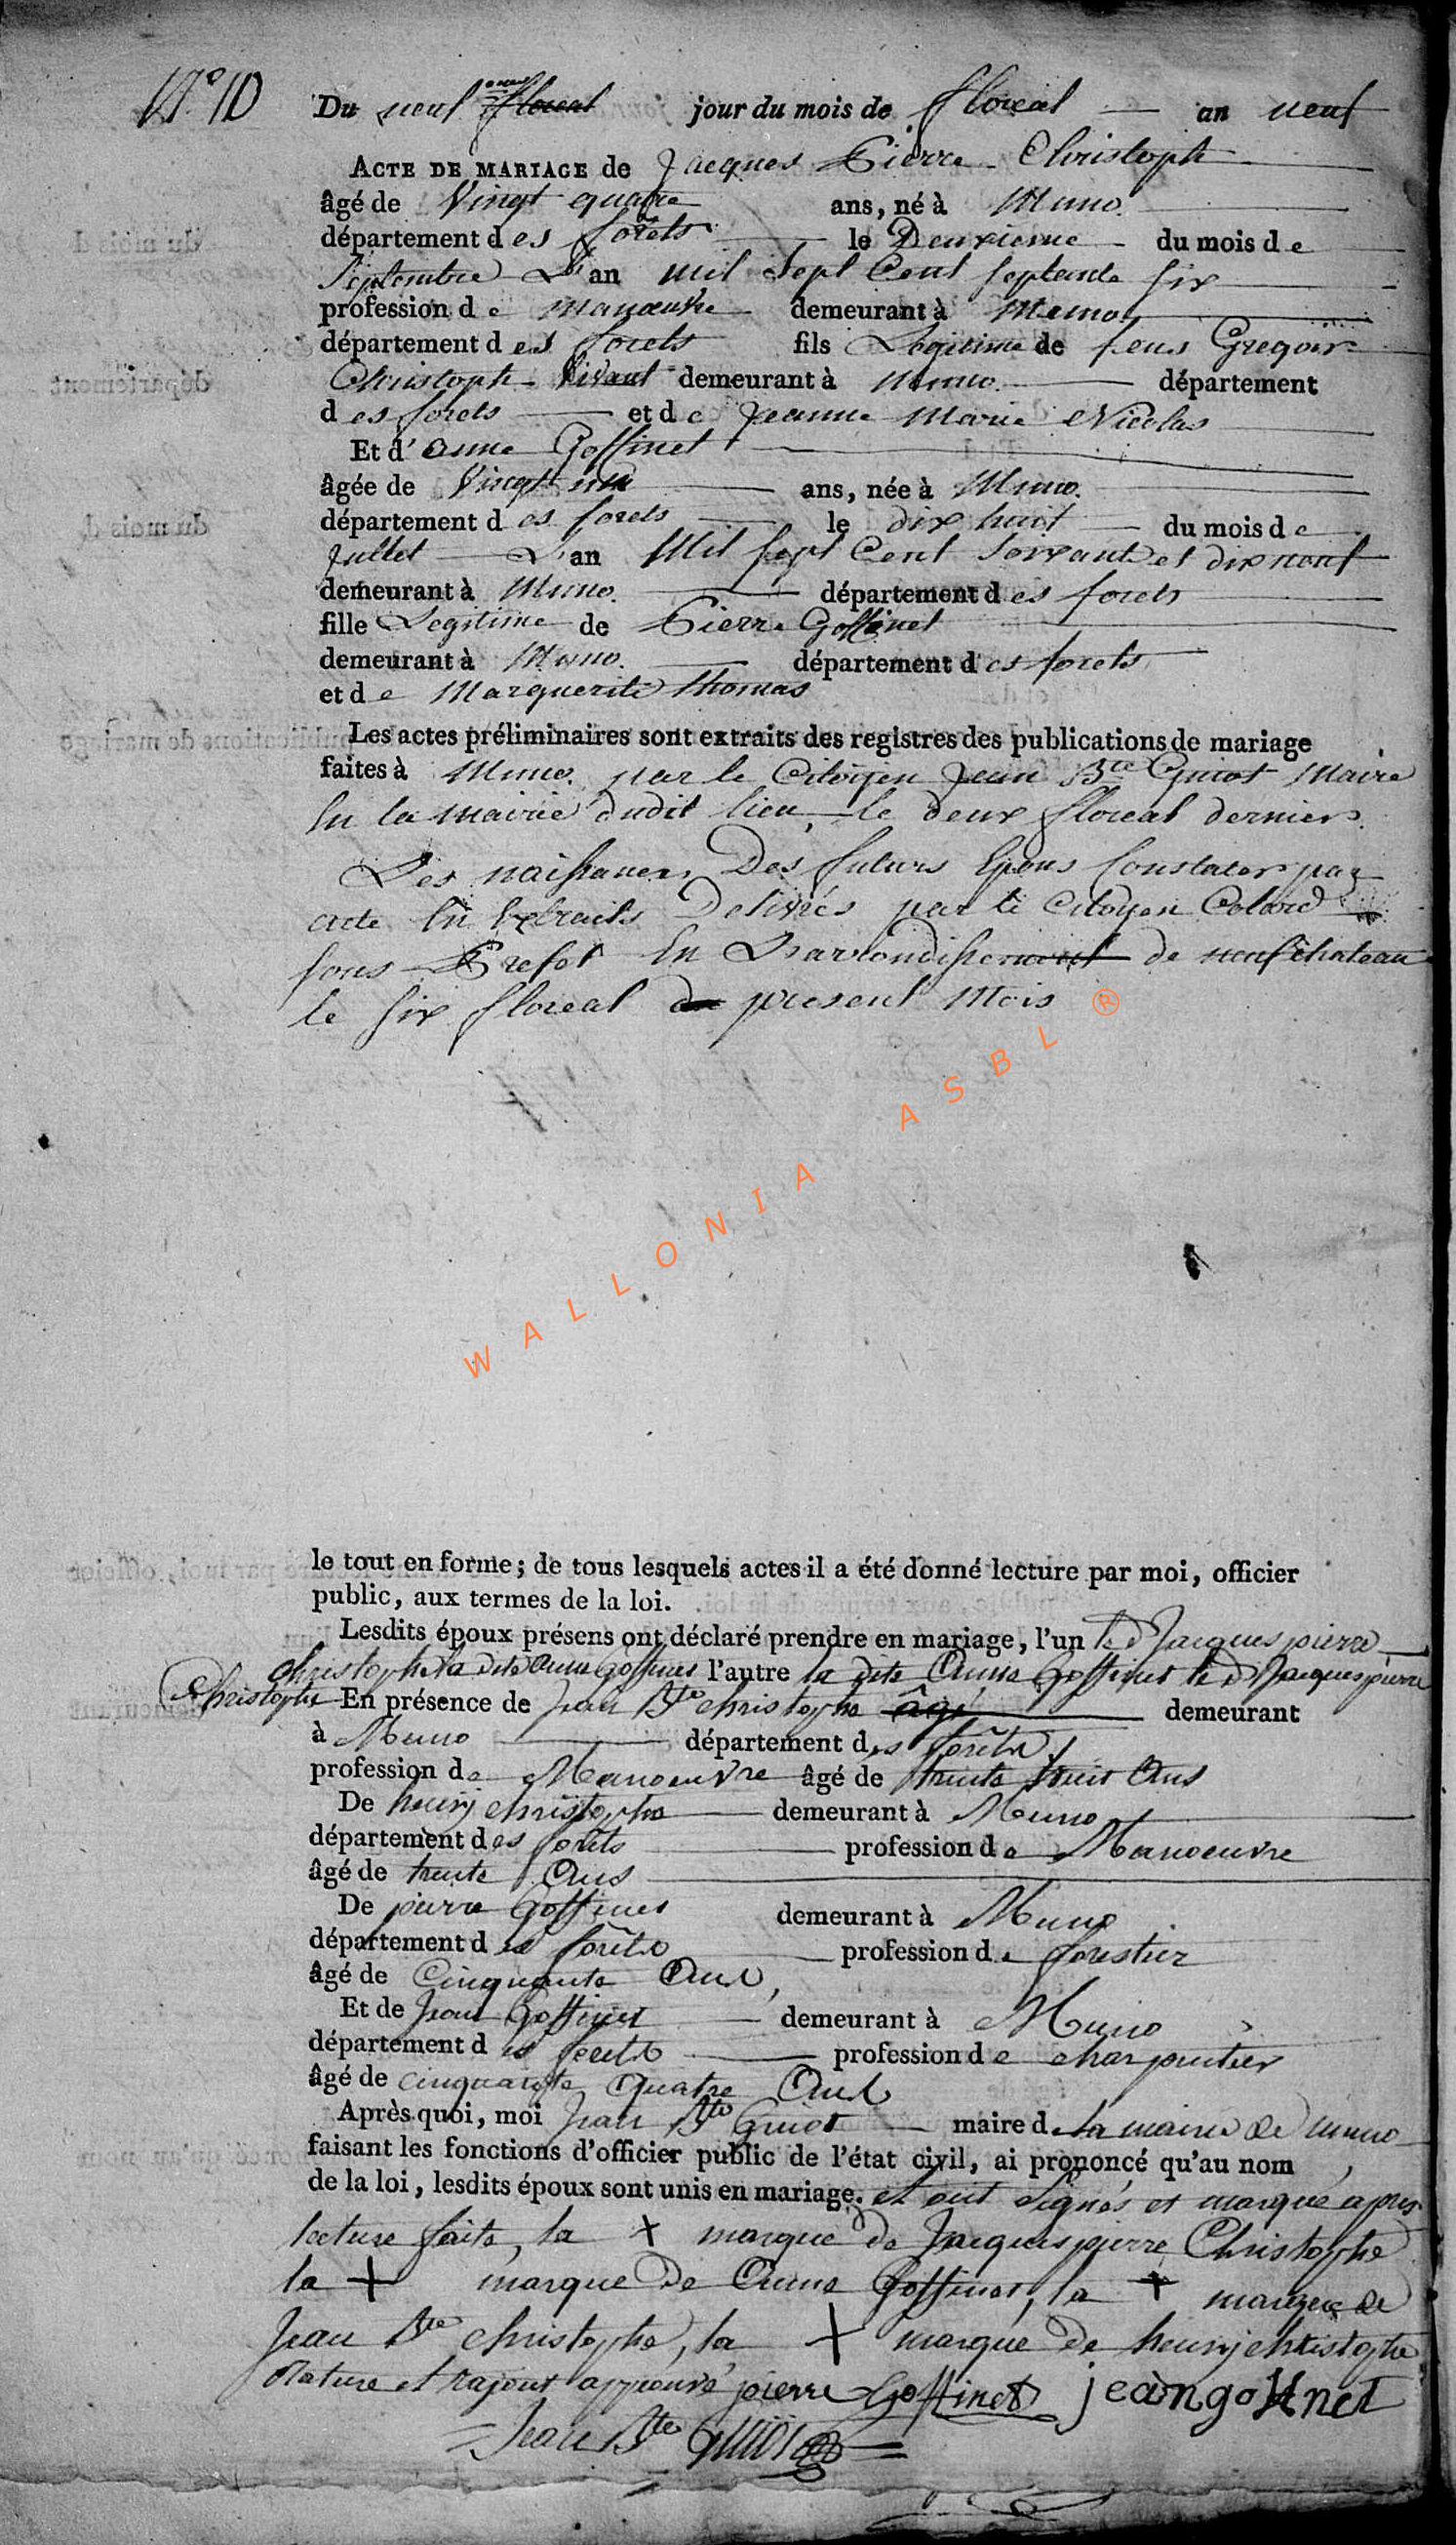 N° 10
Du neuf floreal jour du mois de floreal an neuf
ACTE DE MARIAGE de Jacques Pierre Christoph
âgé de Vingt quatre ans, né à Muno.
département des forêts le Deuxieme du mois de
Septembre L'an mil Sept Cent septante six
profession de manoeuvre demeurant à Muno
département des forets fils Legitime de feus Gregoir
Christoph vivant demeurant à Muno. département
des forets et de Jeanne Marie Nicolas
Et d'anne Goffinet
âgée de Vingt un ans, née à Muno.
département des forets le dix huit du mois de
Jullet L'an Mil sept Cent soixante et dix nonf
demeurant à Muno. département des forets
fille Legitime de Pierre Goffinet
demeurant à Muno. département des forets
et de Marguerite thomas
Les actes préliminaires sont extraits des registres des publications de mariage
faites à Muno. par le Citoyen Jean Bte Guiot Maire
En la mairie dudit lieu, le deux floreal dernier.
Les naissances Des futurs Epous Constater par
acte En Extraits Delivrés par le Citoyen Colard
sous Prefet En L'arrondissement de neufchateau
le six floreal du present Mois
WALLONIA ASBL ®
le tout en forme; de tous lesquels actes il a été donné lecture par moi, officier
public, aux termes de la loi.
Lesdits époux présens ont déclaré prendre en mariage, l'un le d Jacques pierre
christophe la dite Anne Goffinet l'autre la dite Anne Goffinet le d Jacques pierre
Christophe En présence de Jean Bte christophe âgé demeurant
à Muno département des forêts
profession de Manoeuvre âgé de trente huit Ans
De henrij christophe demeurant à Muno
département des forêts profession de Manoeuvre
âgé de trente Ans
De pierre Goffinet demeurant à Muno
département des forêts profession de forestier
âgé de Cinquante Ans,
Et de Jean Goffinet demeurant à Muno
département des forêts profession de charpentier
âgé de cinquante Quatre Ans
Après quoi, moi Jean Bte Guiot maire de la mairie de Muno
faisant les fonctions d'officier public de l'état civil, ai prononcé qu'au nom
de la loi, lesdits époux sont unis en mariage. et ont signés et marqué après
lecture faite, la + marque de Jacques pierre Christophe
la + marque de Anne Goffinet, la + marque de
Jean Bte christophe, la + marque de henrij christophe
Rature et rajout approuvé pierre Goffinet jean goffinet
Jean Bte Guiot